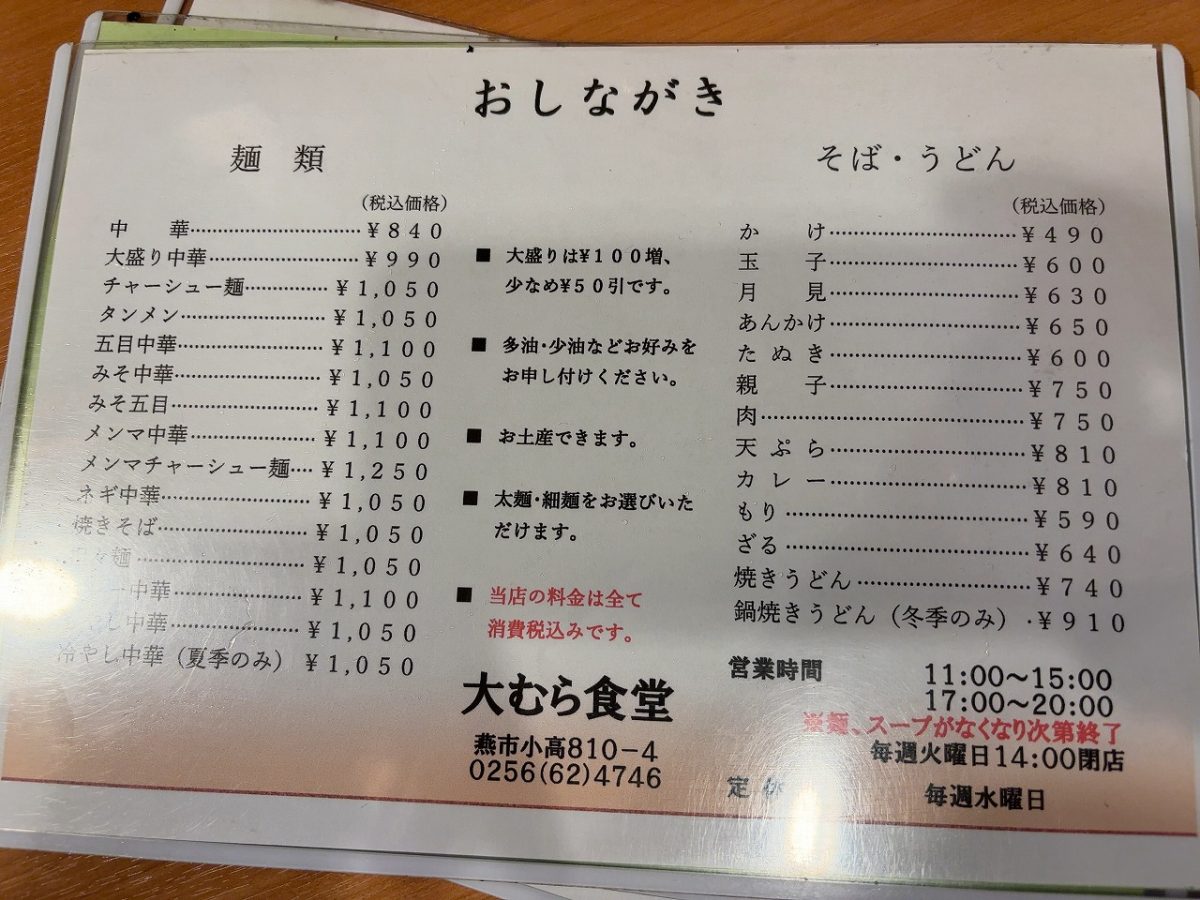 おしながき
麺 類
(税込価格)
中 華 ¥840
大盛り中華 ¥990
チャーシュー麺 ¥1,050
タンメン ¥1,050
五目中華 ¥1,100
みそ中華 ¥1,050
みそ五目 ¥1,100
メンマ中華 ¥1,100
メンマチャーシュー麺 ¥1,250
ネギ中華 ¥1,050
焼きそば ¥1,050
麺 ¥1,050
ー中華 ¥1,100
し中華 ¥1,050
冷やし中華（夏季のみ） ¥1,050
■ 大盛りは¥100増、
少なめ¥50引です。
■ 多油・少油などお好みを
お申し付けください。
■ お土産できます。
■ 太麺・細麺をお選びいた
だけます。
■ 当店の料金は全て
消費税込みです。
大むら食堂
燕市小高810-4
0256(62)4746
そば・うどん
(税込価格)
か け ¥490
玉 子 ¥600
月 見 ¥630
あんかけ ¥650
た ぬ き ¥600
親 子 ¥750
肉 ¥750
天 ぷ ら ¥810
カ レ ー ¥810
もり ¥590
ざる ¥640
焼きうどん ¥740
鍋焼きうどん（冬季のみ） ¥910
営業時間 11:00〜15:00
17:00〜20:00
※麺、スープがなくなり次第終了
毎週火曜日14:00閉店
定 休 毎週水曜日